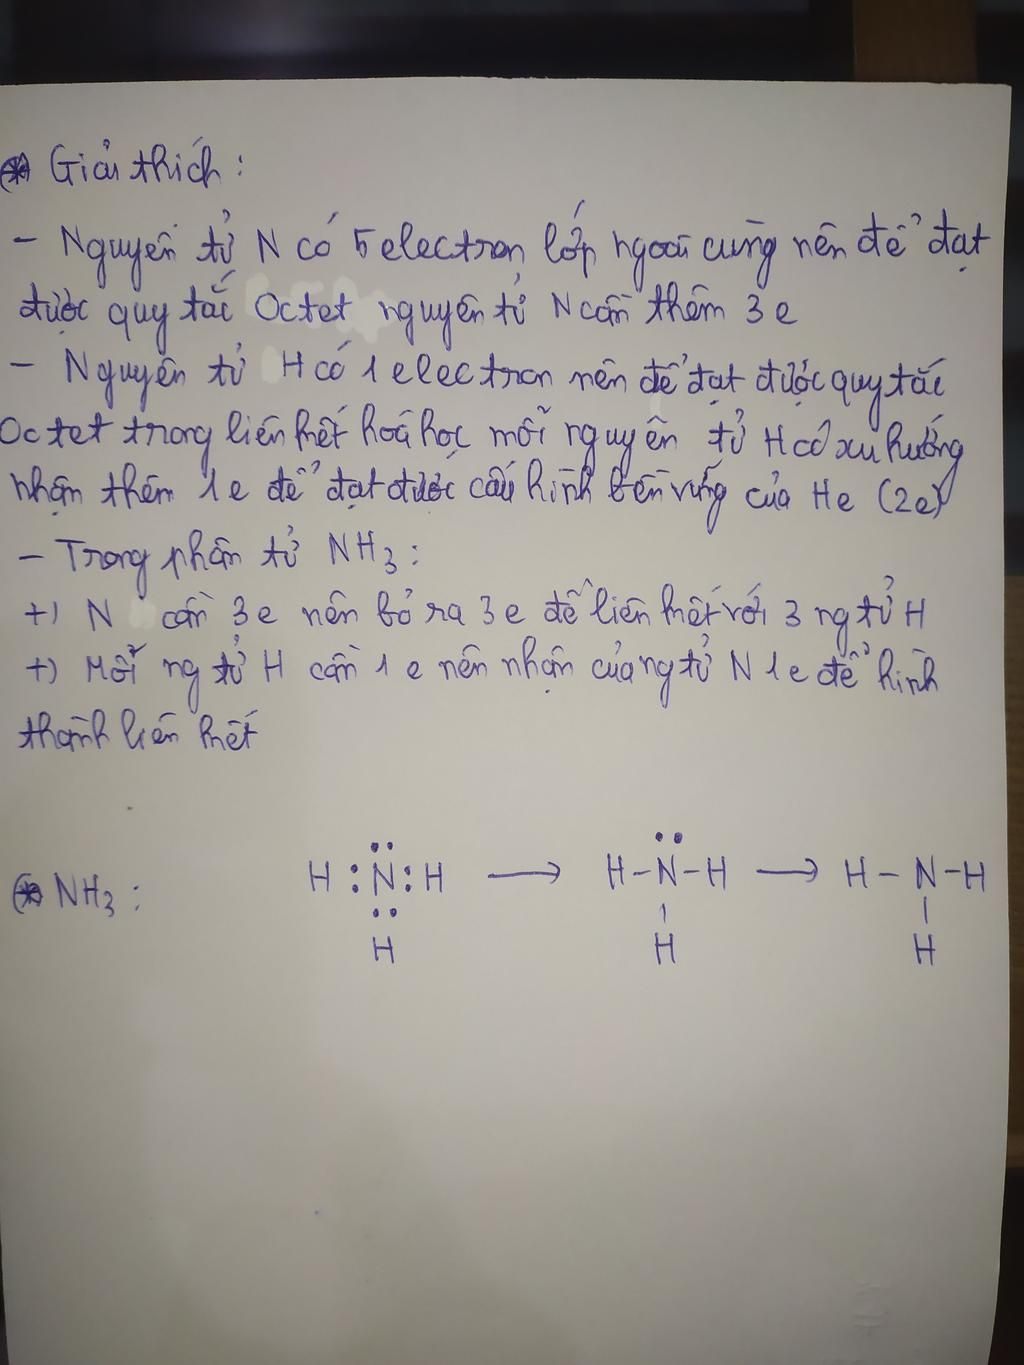 * Giải thích :
- Nguyên tử N có 5 electron lớp ngoài cùng nên để đạt
được quy tắc Octet nguyên tử N cần thêm 3 e
- Nguyên tử H có 1 electron nên để đạt được quy tắc
Octet trong liên kết hoá học mỗi nguyên tử H có xu hướng
nhận thêm 1 e để đạt được cấu hình bền vững của He (2e)
- Trong phân tử NH3 :
+) N cần 3 e nên bỏ ra 3 e để liên kết với 3 ng tử H
+) Mỗi ng tử H cần 1 e nên nhận của ng tử N 1 e để hình
thành liên kết
* NH3 : H : N : H → H - N - H → H - N - H
H H H